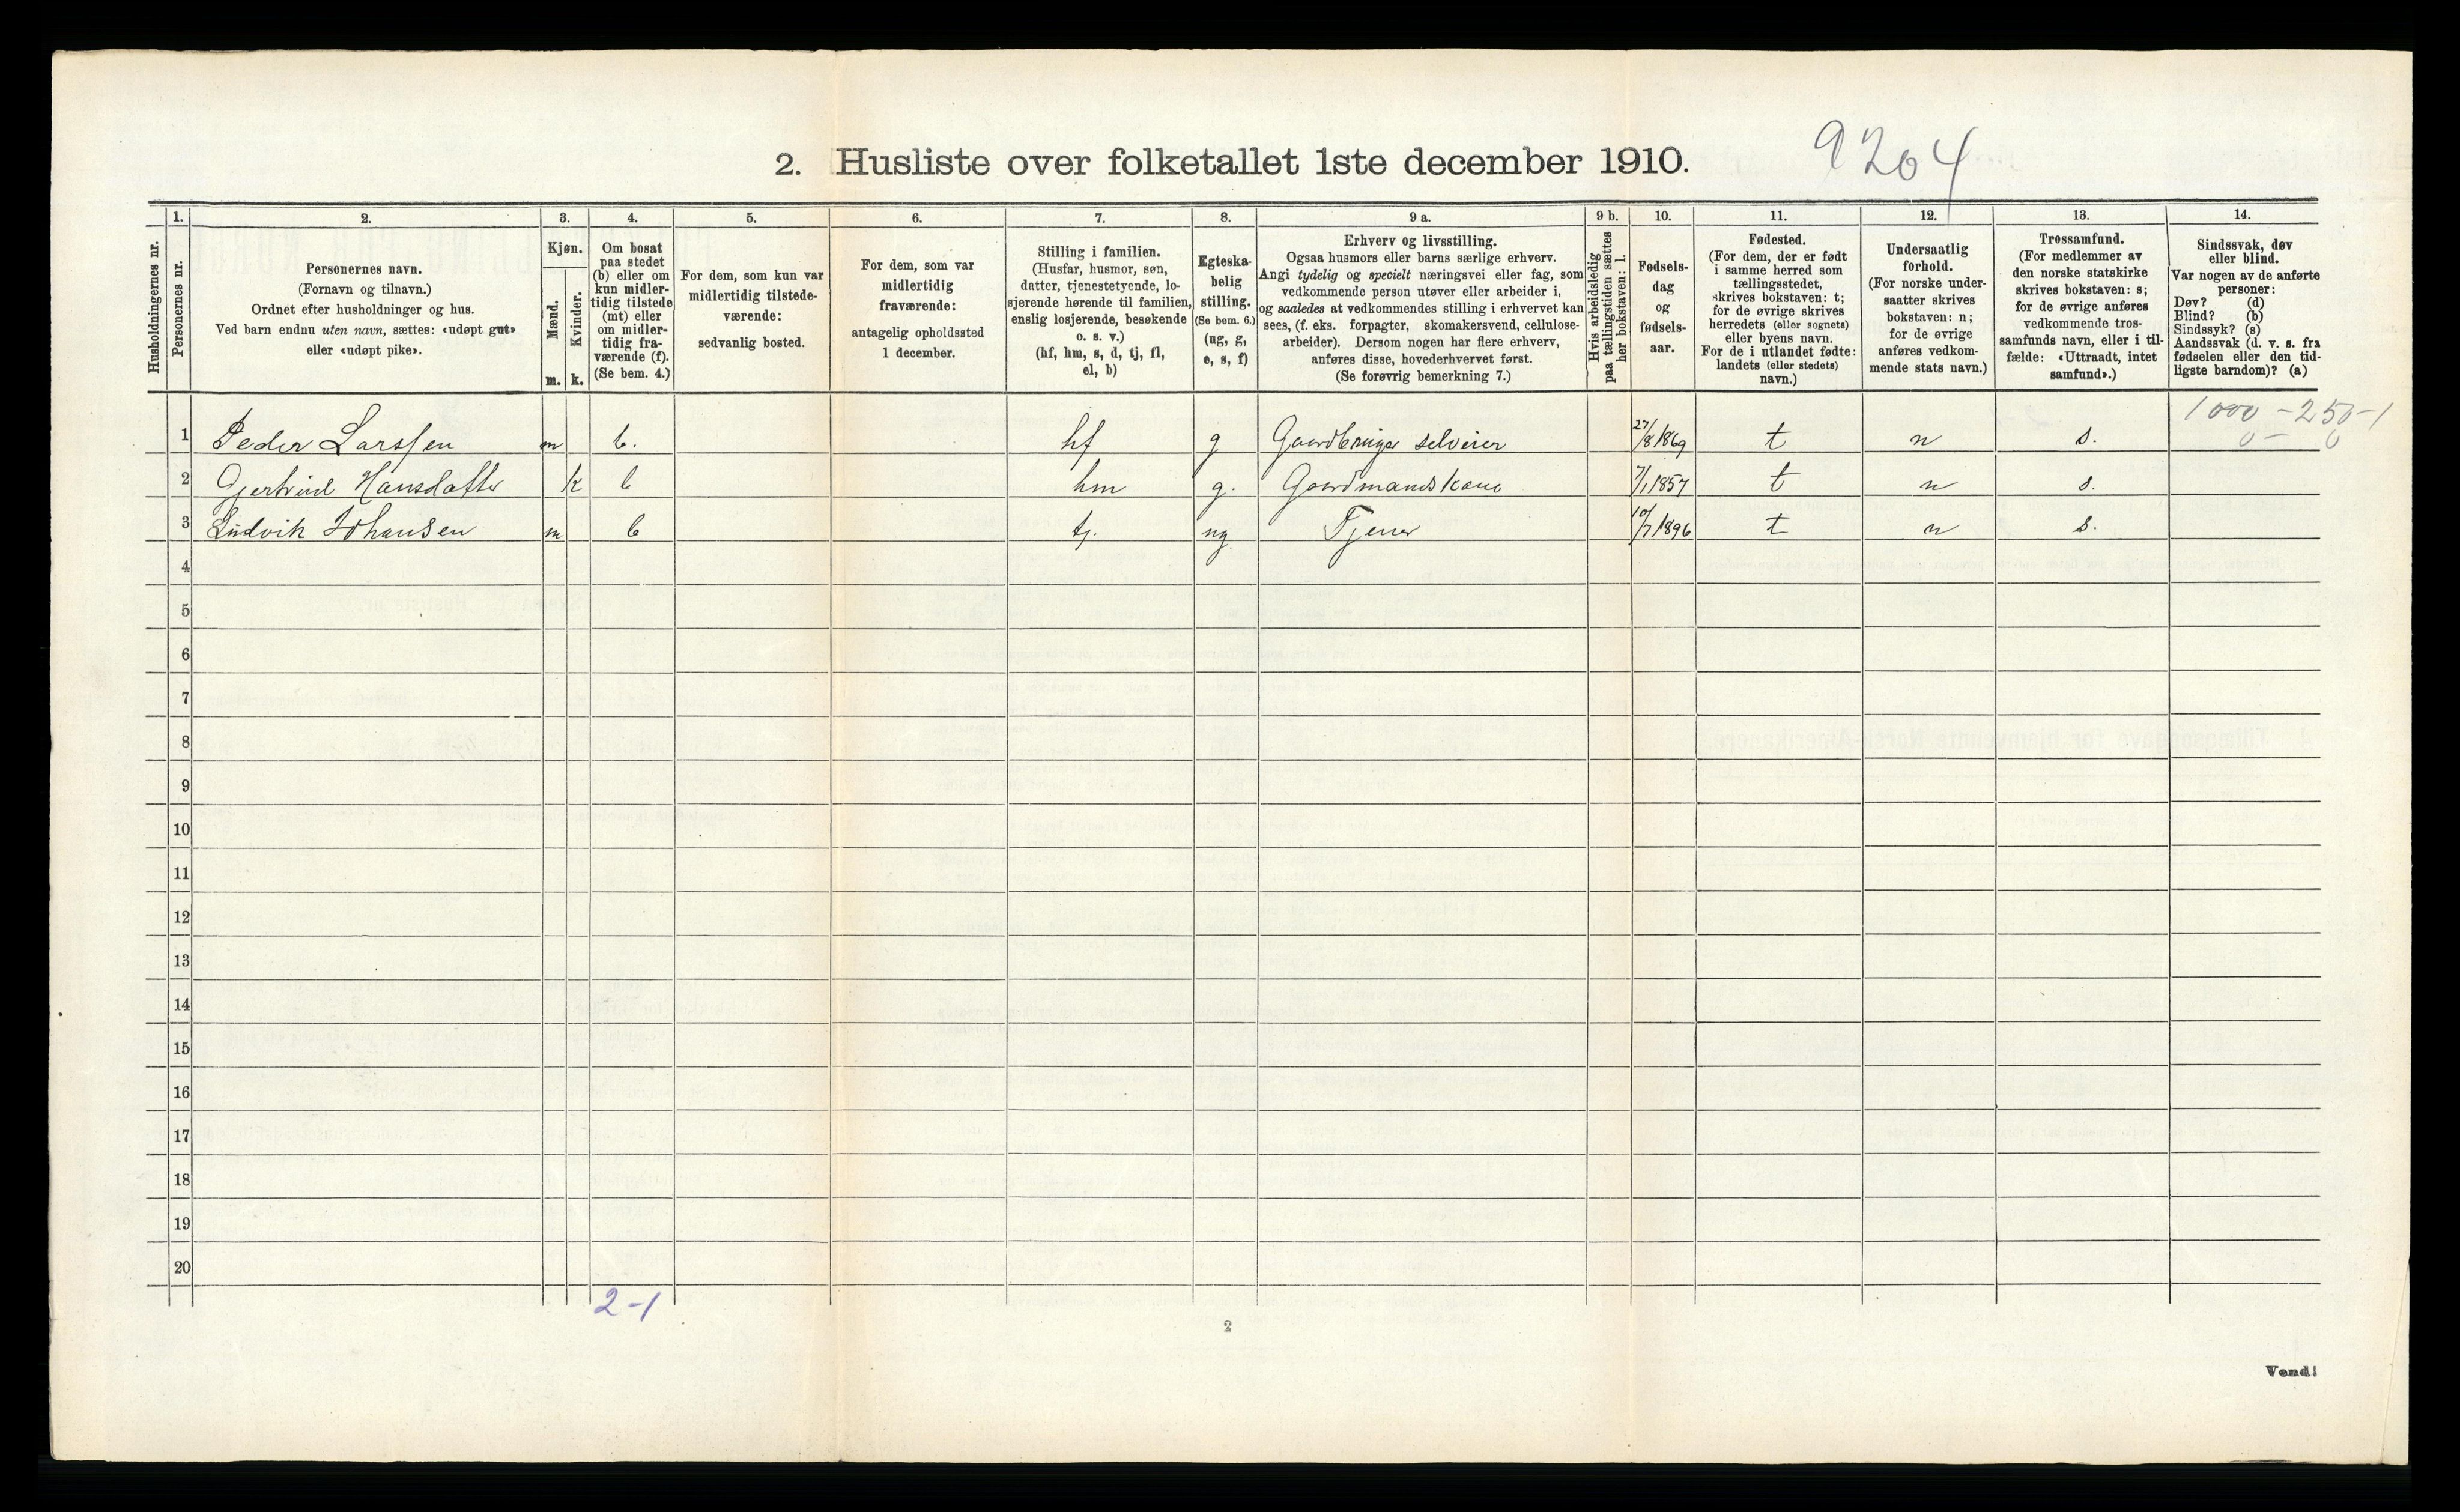 2. Husliste over folketallet 1ste december 1910.
9204
Husholdningernes nr.
1.
Personernes nr.
2.
Personernes navn.
(Fornavn og tilnavn.)
Ordnet efter husholdninger og hus.
Ved barn endnu uten navn, sættes: «udøpt gut»
eller «udøpt pike».
3.
Kjøn.
Mænd.
m.
Kvinder.
k.
4.
Om bosat
paa stedet
(b) eller om
kun midler-
tidig tilstede
(mt) eller
om midler-
tidig fra-
værende (f).
(Se bem. 4.)
5.
For dem, som kun var
midlertidig tilstede-
værende:
sedvanlig bosted.
6.
For dem, som var
midlertidig
fraværende:
antagelig opholdssted
1 december.
7.
Stilling i familien.
(Husfar, husmor, søn,
datter, tjenestetyende, lo-
sjerende hørende til familien,
enslig losjerende, besøkende
o. s. v.)
(hf, hm, s, d, tj, fl,
el, b)
8.
Egteska-
belig
stilling.
(Se bem. 6.)
(ug, g,
e, s, f)
9 a.
Erhverv og livsstilling.
Ogsaa husmors eller barns særlige erhverv.
Angi tydelig og specielt næringsvei eller fag, som
vedkommende person utøver eller arbeider i,
og saaledes at vedkommendes stilling i erhvervet kan
sees, (f. eks. forpagter, skomakersvend, cellulose-
arbeider). Dersom nogen har flere erhverv,
anføres disse, hovederhvervet først.
(Se forøvrig bemerkning 7.)
9 b.
Hvis arbeidsledig
paa tællingstiden sættes
her bokstaven: l.
10.
Fødsels-
dag
og
fødsels-
aar.
11.
Fødested.
(For dem, der er født
i samme herred som
tællingsstedet,
skrives bokstaven: t;
for de øvrige skrives
herredets (eller sognets)
eller byens navn.
For de i utlandet fødte:
landets (eller stedets)
navn.)
12.
Undersaatlig
forhold.
(For norske under-
saatter skrives
bokstaven: n;
for de øvrige
anføres vedkom-
mende stats navn.)
13.
Trossamfund.
(For medlemmer av
den norske statskirke
skrives bokstaven: s;
for de øvrige anføres
vedkommende tros-
samfunds navn, eller i til-
fælde: «Uttraadt, intet
samfund».)
14.
Sindssvak, døv
eller blind.
Var nogen av de anførte
personer:
Døv? (d)
Blind? (b)
Sindssyk? (s)
Aandssvak (d. v. s. fra
fødselen eller den tid-
ligste barndom)? (a)
1000 - 250-1
0 - 0
1 Peder Larssen m b. hf g Gaardbruger selveier 27/8 1869 t n s.
2 Gjertrud Hansdatter k b hm g. Gaardmandskone 7/1 1857 t n s.
3 Ludvik Johansen m b tj. ug Tjener 10/7 1896 t n s.
4
5
6
7
8
9
10
11
12
13
14
15
16
17
18
19
20
2-1
2
Vend!